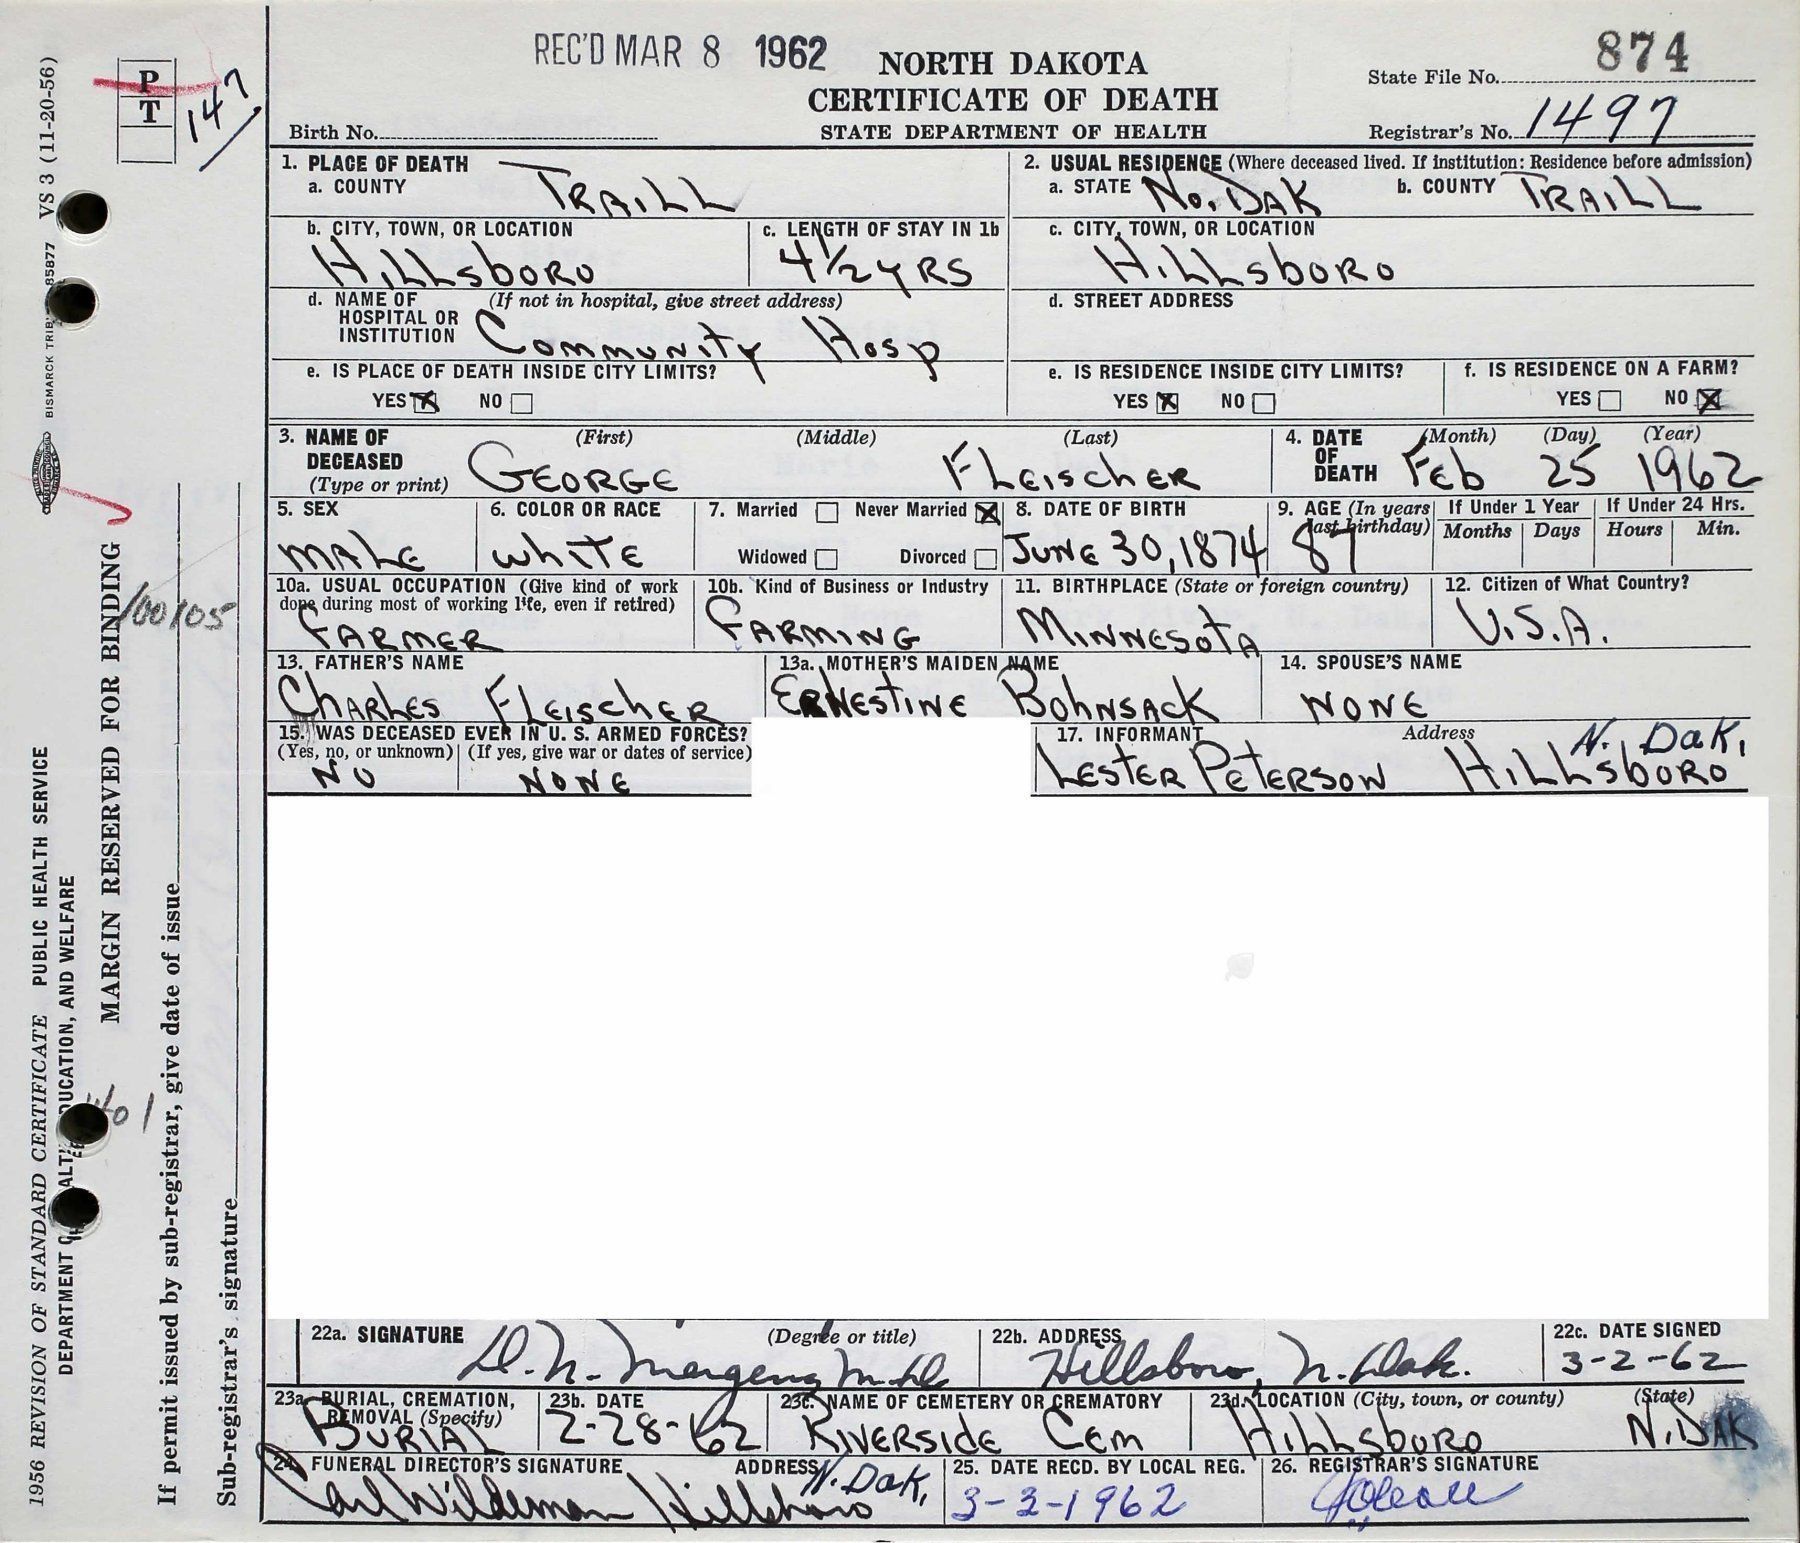 REC'D MAR 8 1962
NORTH DAKOTA
CERTIFICATE OF DEATH
STATE DEPARTMENT OF HEALTH
State File No. 874
Birth No.
Registrar's No. 1497
P
T
147
1. PLACE OF DEATH
a. COUNTY TRAILL
2. USUAL RESIDENCE (Where deceased lived. If institution: Residence before admission)
a. STATE No. DAK b. COUNTY TRAILL
b. CITY, TOWN, OR LOCATION Hillsboro
c. LENGTH OF STAY IN 1b 4 1/2 YRS
c. CITY, TOWN, OR LOCATION Hillsboro
d. NAME OF HOSPITAL OR INSTITUTION (If not in hospital, give street address) Community Hosp
d. STREET ADDRESS
e. IS PLACE OF DEATH INSIDE CITY LIMITS?
YES X NO
e. IS RESIDENCE INSIDE CITY LIMITS?
YES X NO
f. IS RESIDENCE ON A FARM?
YES NO X
3. NAME OF DECEASED (Type or print)
(First) (Middle) (Last)
GEORGE FLEISCHER
4. DATE OF DEATH (Month) (Day) (Year)
Feb 25 1962
5. SEX MALE
6. COLOR OR RACE WHITE
7. Married Never Married X
Widowed Divorced
8. DATE OF BIRTH JUNE 30, 1874
9. AGE (In years last birthday) 87
If Under 1 Year Months Days
If Under 24 Hrs. Hours Min.
10a. USUAL OCCUPATION (Give kind of work done during most of working life, even if retired)
FARMER
10b. Kind of Business or Industry
FARMING
11. BIRTHPLACE (State or foreign country)
MINNESOTA
12. Citizen of What Country?
U.S.A.
13. FATHER'S NAME
CHARLES FLEISCHER
13a. MOTHER'S MAIDEN NAME
ERNESTINE BOHNSACK
14. SPOUSE'S NAME
NONE
15. WAS DECEASED EVER IN U. S. ARMED FORCES?
(Yes, no, or unknown) (If yes, give war or dates of service)
NO NONE
17. INFORMANT Address
LESTER PETERSON HILLSBORO N. DAK.
22a. SIGNATURE (Degree or title)
22b. ADDRESS
Hillsboro, N. Dak.
22c. DATE SIGNED
3-2-62
23a. BURIAL, CREMATION, REMOVAL (Specify)
BURIAL
23b. DATE
2-28-62
23c. NAME OF CEMETERY OR CREMATORY
RIVERSIDE CEM
23d. LOCATION (City, town, or county) (State)
HILLSBORO N. DAK
24. FUNERAL DIRECTOR'S SIGNATURE ADDRESS
Carl Wildeman Hillsboro N. Dak.
25. DATE RECD. BY LOCAL REG.
3-3-1962
26. REGISTRAR'S SIGNATURE
VS 3 (11-20-56)
BISMARCK TRIB 85877
1956 REVISION OF STANDARD CERTIFICATE PUBLIC HEALTH SERVICE
DEPARTMENT OF HEALTH, EDUCATION, AND WELFARE
MARGIN RESERVED FOR BINDING
100105
If permit issued by sub-registrar, give date of issue
Sub-registrar's signature